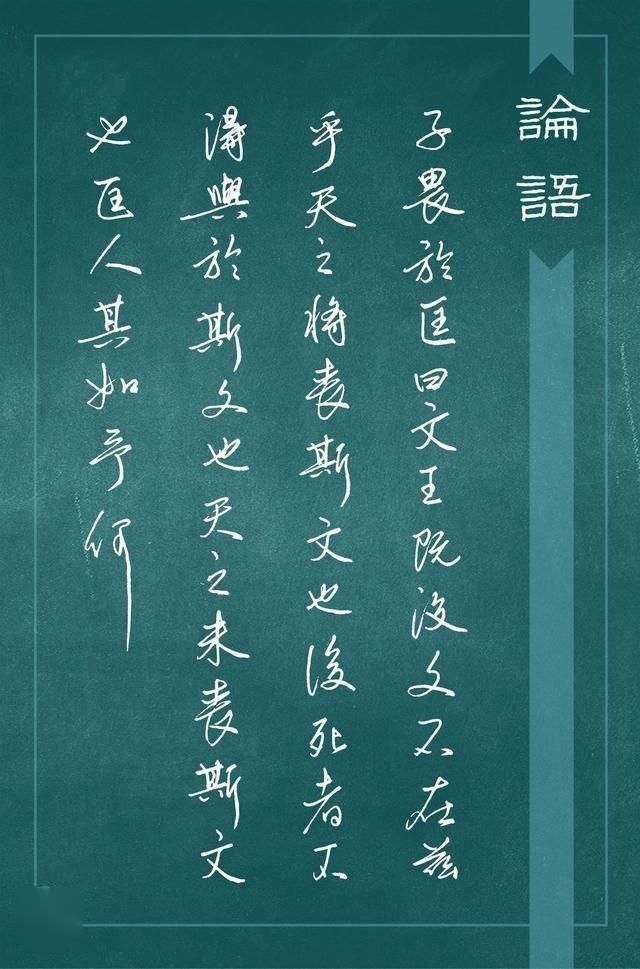 論語
子畏於匡曰文王既没文不在茲
乎天之將喪斯文也後死者不
得與於斯文也天之未喪斯文
也匡人其如予何